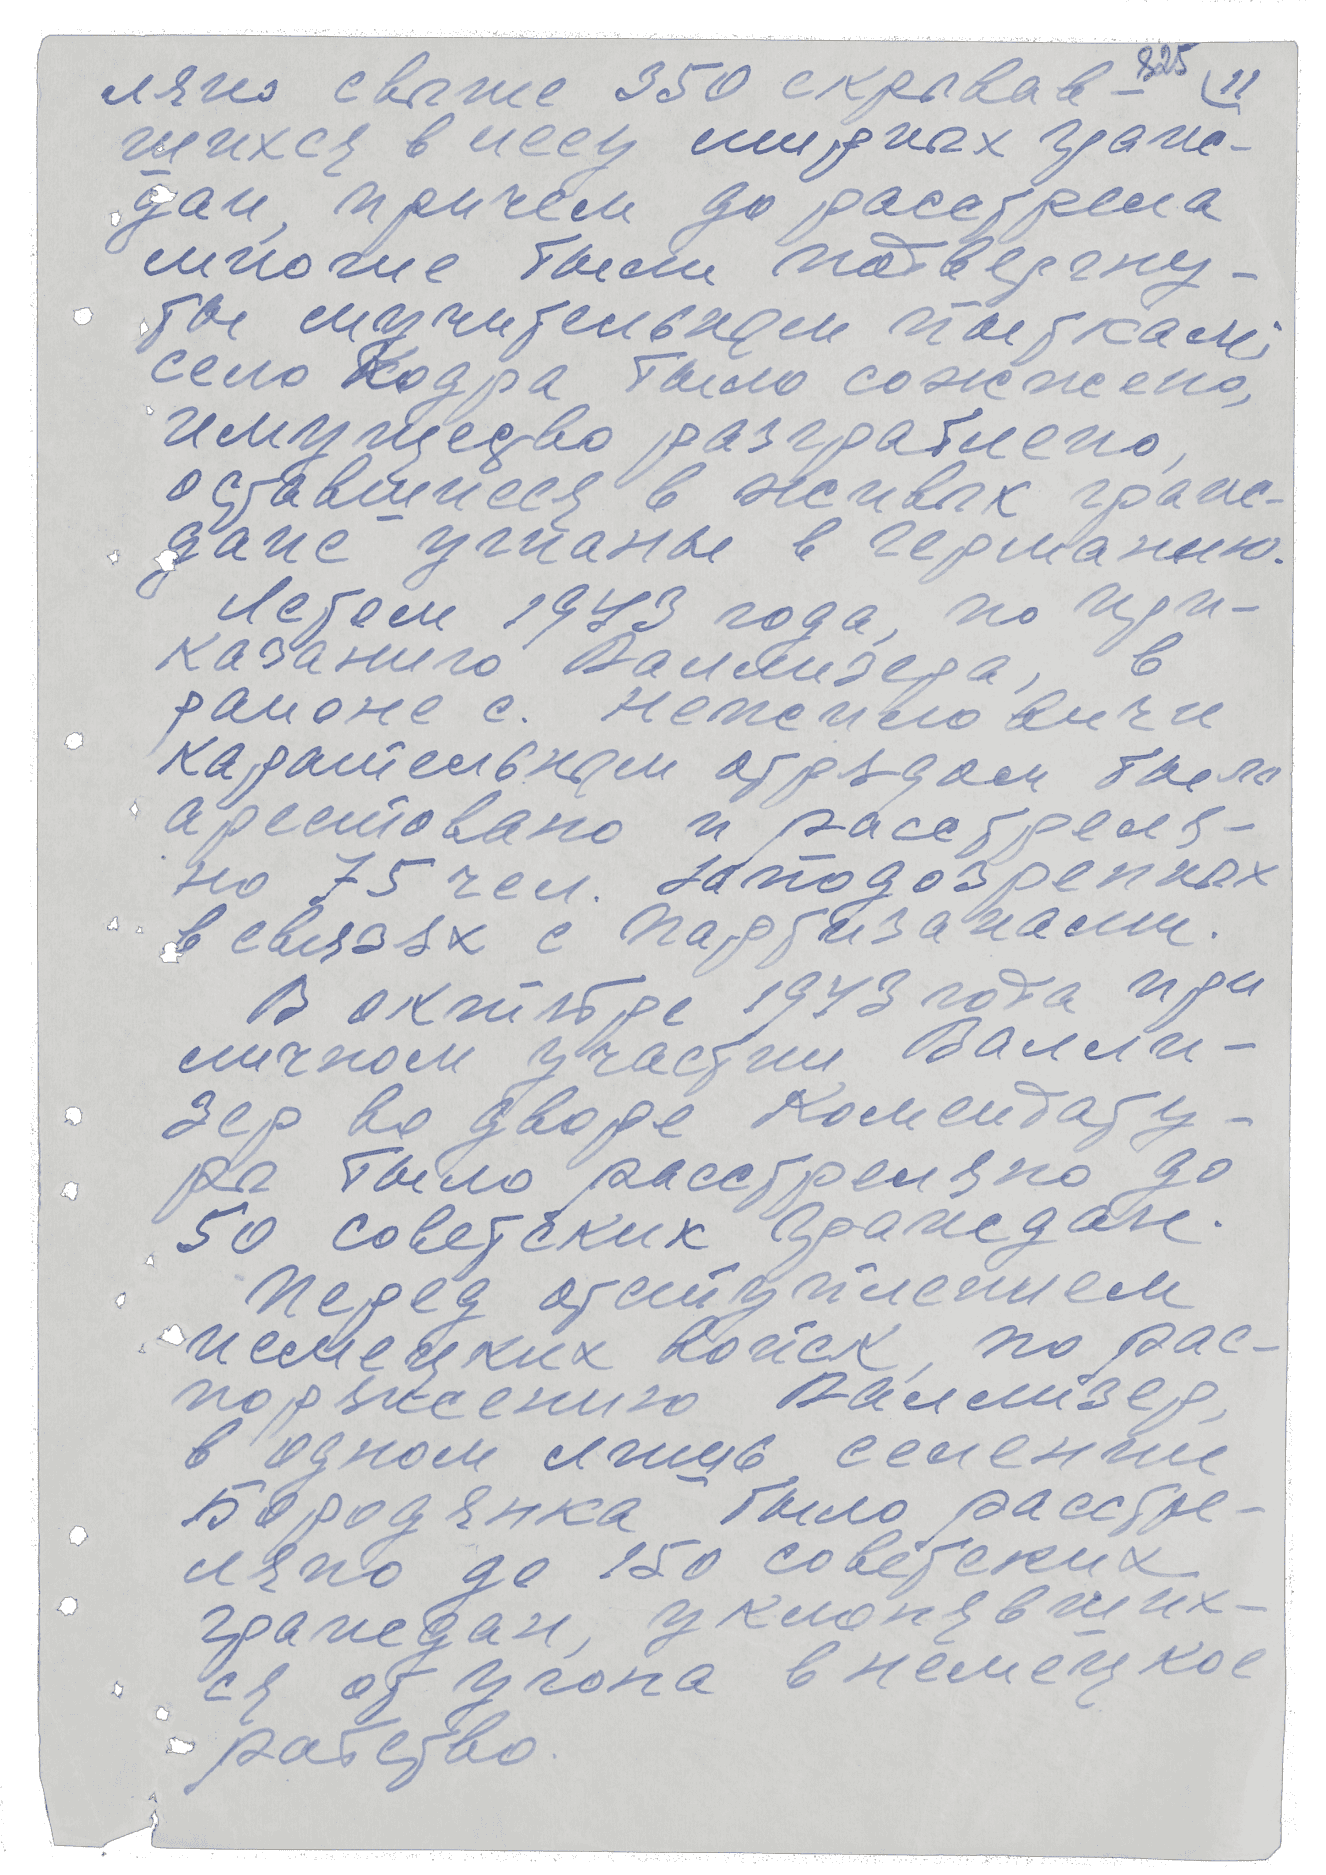 325 11
ляно свыше 350 скрывав-
шихся в лесу мирных граж-
дан, причем до расстрела
многие были подвергну-
ты мучительным пыткам;
село Кодра было сожжено,
имущество разграблено,
оставшиеся в живых граж-
дане угнаны в Германию.
Летом 1943 года, по при-
казанию Валлизера, в
районе с. Непиловичи
карательным отрядом было
арестовано и расстреля-
но 75 чел. заподозренных
в связях с партизанами.
В октябре 1943 года при
личном участии Валли-
зер во дворе Комендату-
ры было расстреляно до
50 советских граждан.
Перед отступлением
немецких войск, по рас-
поряжению Валлизер,
в одном лишь селении
Бородянка было расстре-
ляно до 150 советских
граждан, уклонявших-
ся от угона в немецкое
рабство.